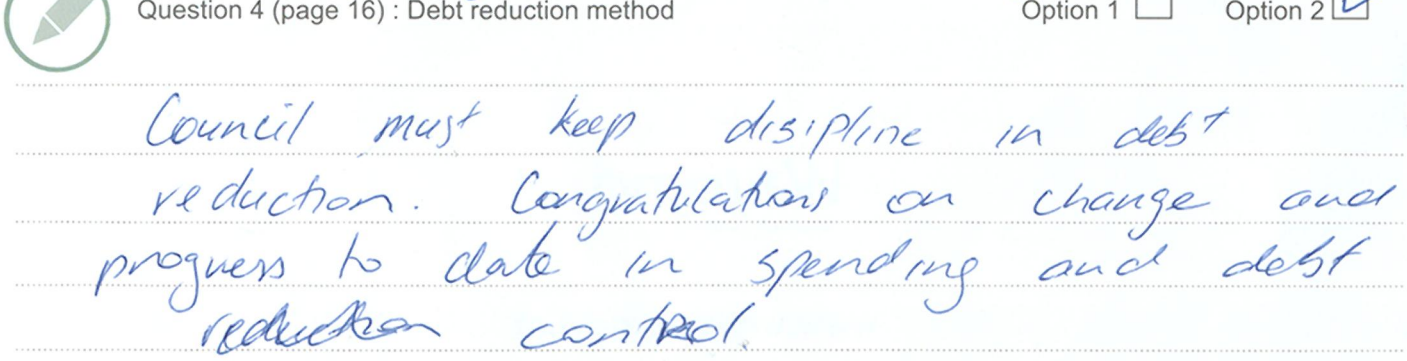 Question 4 (page 16) : Debt reduction method Option 1 Option 2
Council must keep disipline in debt
reduction. Congratulations on change and
progress to date in spending and debt
reduction control.